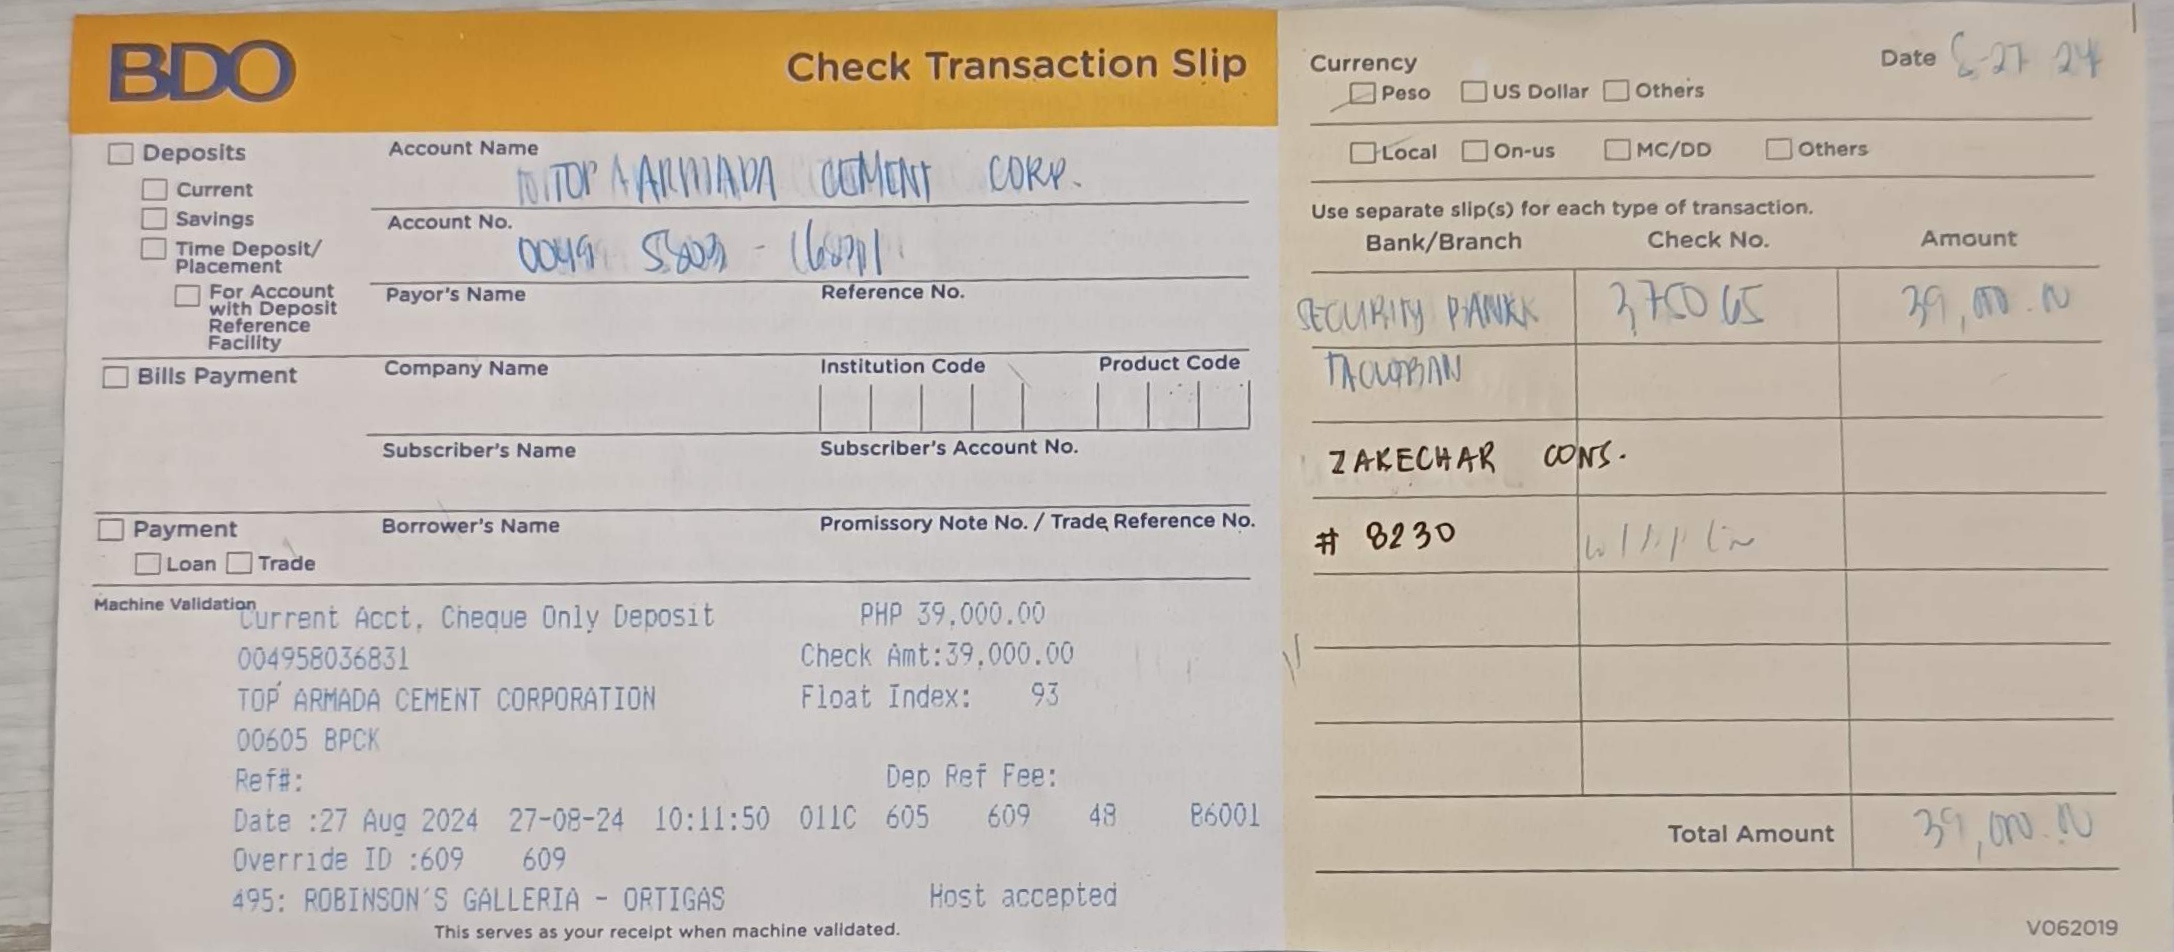 BDO
Check Transaction Slip
Currency
Peso US Dollar Others
Date 8-27 24
Local On-us MC/DD Others
Deposits
Current
Savings
Time Deposit/
Placement
For Account
with Deposit
Reference
Facility
Account Name
TOP ARMADA CEMENT CORP.
Account No.
0049
Payor's Name Reference No.
Bills Payment
Company Name Institution Code Product Code
Subscriber's Name Subscriber's Account No.
Payment
Loan Trade
Borrower's Name Promissory Note No. / Trade Reference No.
Machine Validation
Current Acct, Cheque Only Deposit PHP 39,000.00
004958036831 Check Amt:39,000.00
TOP ARMADA CEMENT CORPORATION Float Index: 93
00605 BPCK
Ref#: Dep Ref Fee:
Date :27 Aug 2024 27-08-24 10:11:50 011C 605 609 48 B6001
Override ID :609 609
495: ROBINSON'S GALLERIA - ORTIGAS Host accepted
This serves as your receipt when machine validated.
Use separate slip(s) for each type of transaction.
Bank/Branch Check No. Amount
SECURITY BANK 375065 39,000.00
TACLOBAN
ZAKECHAR CONS.
# 8230
Total Amount 39,000.00
V062019